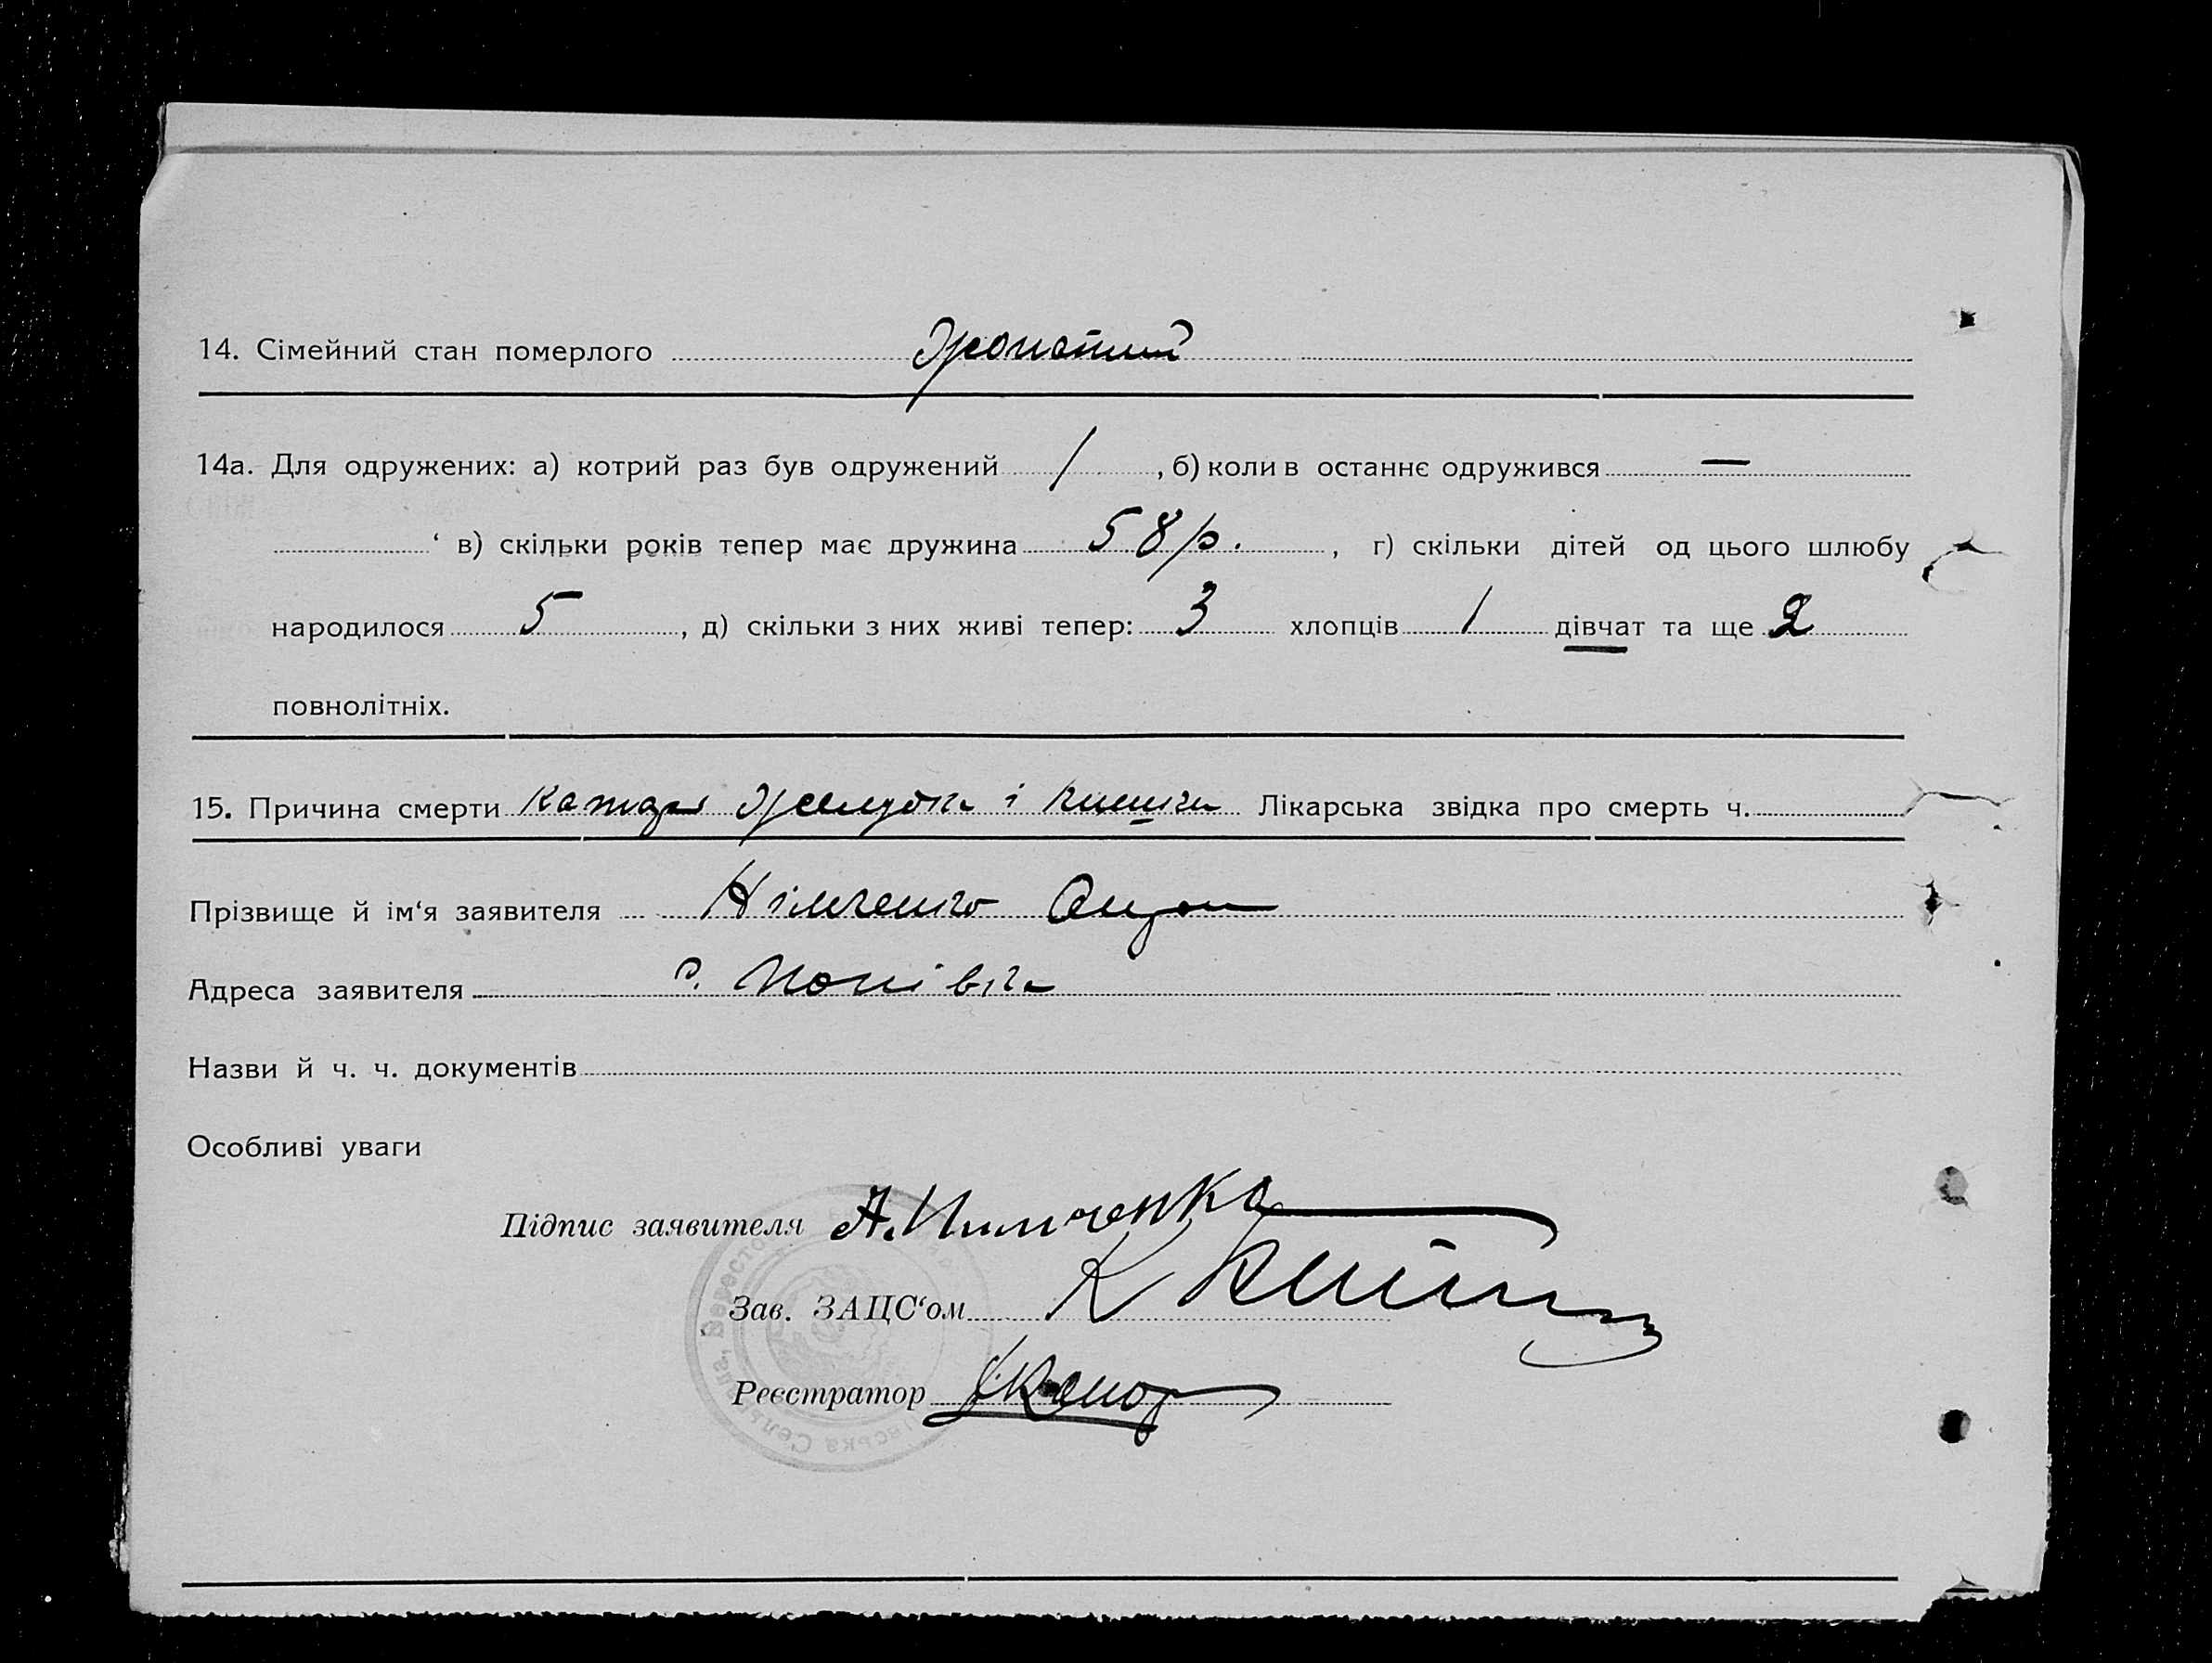 14. Сімейний стан померлого жонатий
14а. Для одружених: а) котрий раз був одружений 1, б) коли в останнє одружився —
‘ в) скільки років тепер має дружина 58 р., г) скільки дітей од цього шлюбу
народилося 5, д) скільки з них живі тепер: 3 хлопців 1 дівчат та ще 2
повнолітніх.
15. Причина смерти катар желудка і кишки Лікарська звідка про смерть ч.
Прізвище й ім‘я заявителя Німченко
Адреса заявителя с. Попівка
Назви й ч. ч. документів
Особливі уваги
Підпис заявителя А. Нимченко
Зав. ЗАЦС‘ом К
Реєстратор